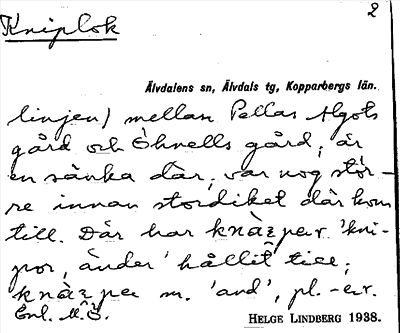 Kniplok
2
Älvdalens sn, Älvdals tg, Kopparbergs län.
linjen) mellan Pellas Algots
gård och Öhnells gård, är
en sänka där, var nog stör-
re innan stordiket där kom
till. Där har knäper 'kni-
por, änder' hållit till;
m. 'and', pl. -er.
Enl. M.Ö.
HELGE LINDBERG 1938.